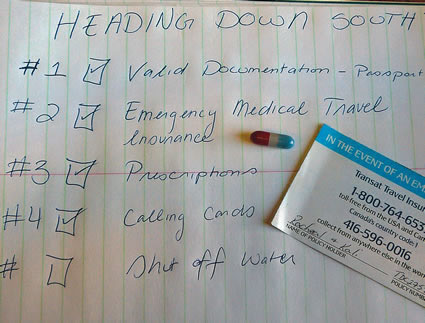 HEADING DOWN SOUTH
#1 Valid Documentation - Passport
#2 Emergency Medical Travel
Insurance
#3 Prescriptions
#4 Calling Cards
# Shut off Water
IN THE EVENT OF AN EM
Transat Travel Insu
1-800-764-653
toll-free from the USA and Can
Canada's country code:1
416-596-0016
collect from anywhere else in the wor
Rachael & Kali
NAME OF POLICY HOLDER
POLICY NUMBER